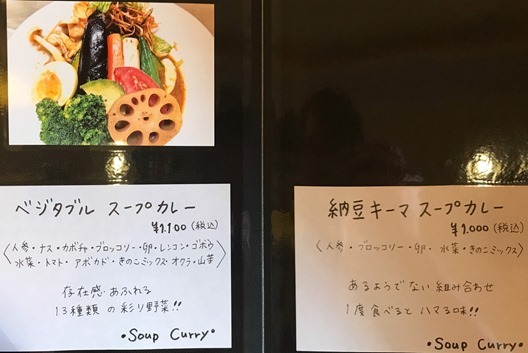 ベジタブル スープカレー
¥1,100(税込)
〈人参・ナス・カボチャ・ブロッコリー・卵・レンコン・ゴボウ
水菜・トマト・アボカド・きのこミックス・オクラ・山芋〉
存在感あふれる
13種類の彩り野菜!!
•Soup Curry•
納豆キーマ スープカレー
¥1,000(税込)
〈人参・ブロッコリー・卵・水菜・きのこミックス〉
あるようでない組み合わせ
1度食べるとハマる味!!
•Soup Curry•